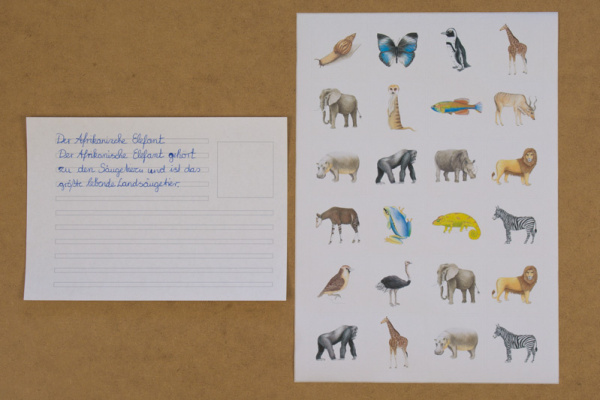 Der Afrikanische Elefant
Der Afrikanische Elefant gehört
zu den Säugetieren und ist das
größte lebende Landsäugetier.